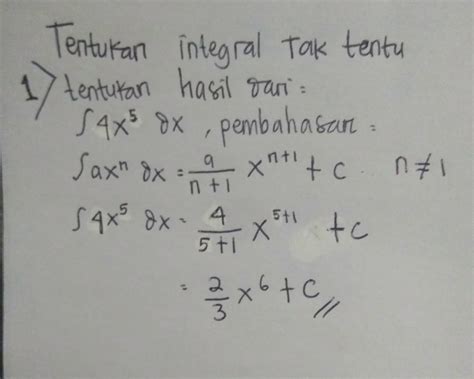 Tentukan integral tak tentu
1) tentukan hasil dari :
∫4x⁵ dx , pembahasan :
∫axⁿ dx = a/(n+1) xⁿ⁺¹ + c . n ≠ 1
∫4x⁵ dx = 4/(5+1) x⁵⁺¹ + c
= 2/3 x⁶ + C //